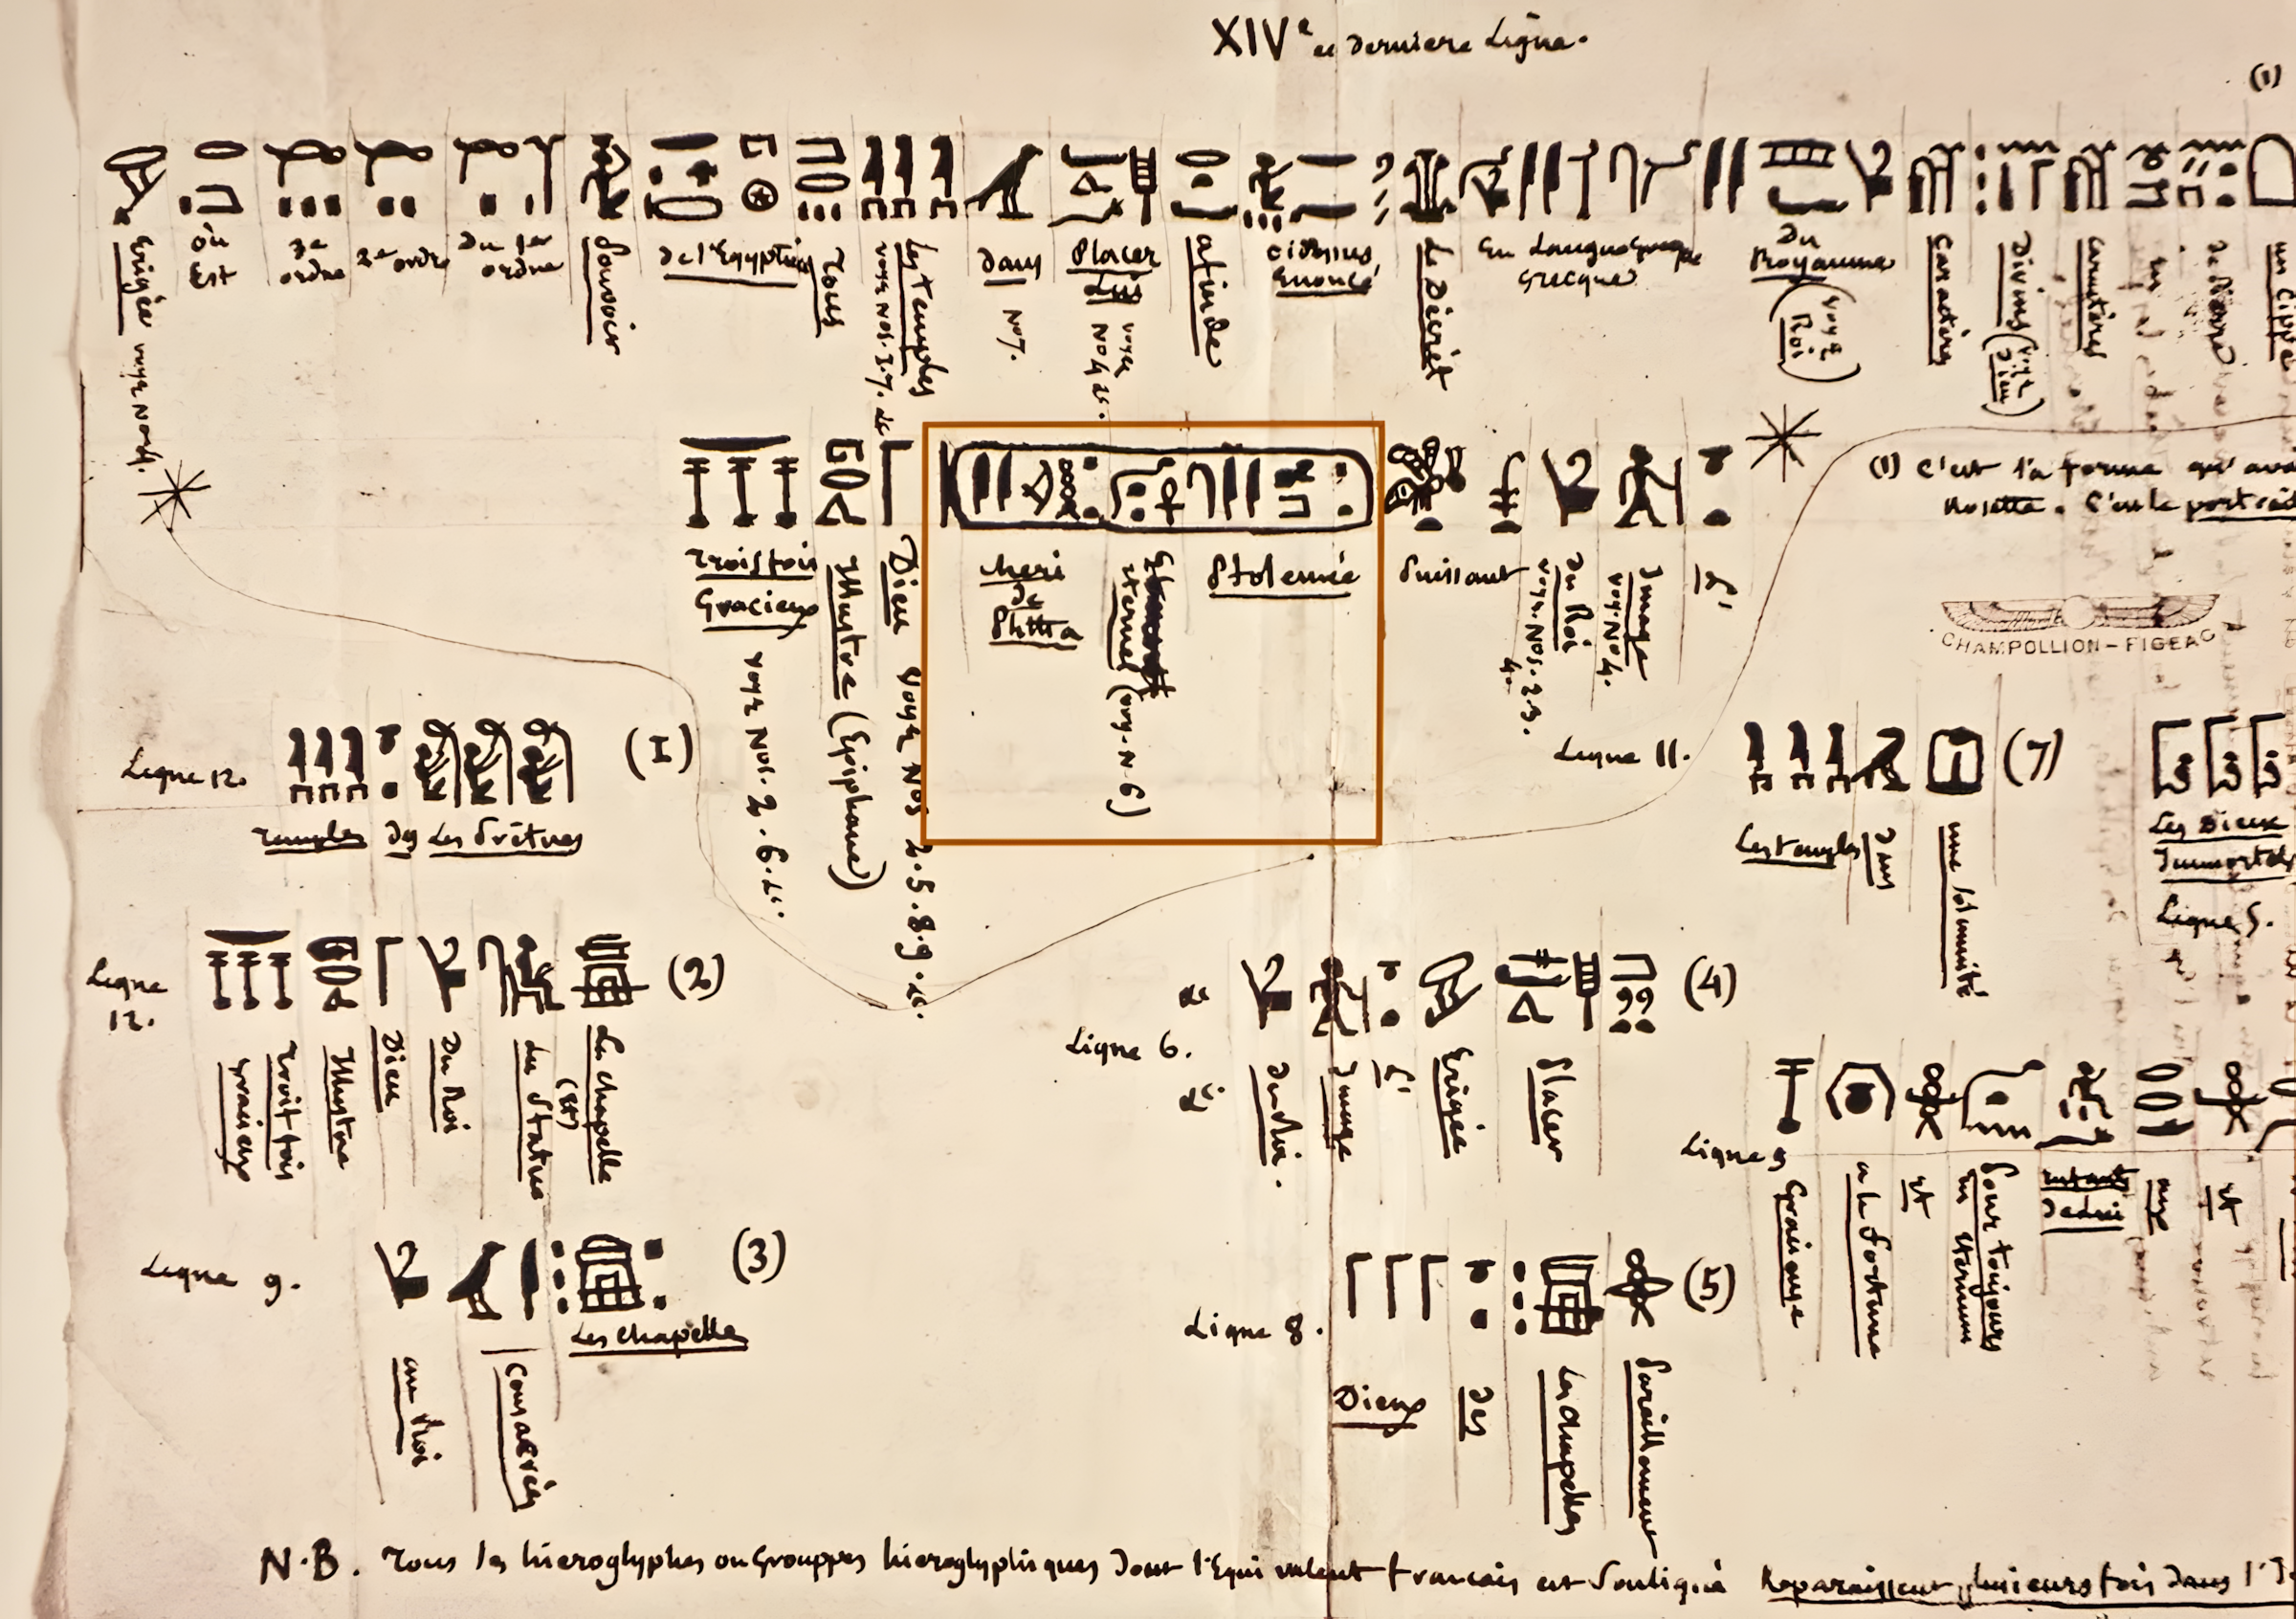 XIVe et derniere Ligne.
(1)
Erigée voyez No 4.
où Est
3e ordre
2e ordre
du 1er ordre
Pouvoir
de l'Egyptien
Tous
Les temples voyez Nos. 1. 7. &c
dans No 7.
Placer Lui voyez No 4 &c.
afinde
cidessus Enoncé
le Décret
En Langue Grecque
Du Royaume (voyez Roi)
Caractères
Divins (voyez Dieu)
caractères
en
un Cippe
Trois fois Gracieux voyez Nos. 2. 6. &c.
Illustre (Epiphane)
Dieu voyez Nos 2. 5. 8. 9. &c.
cheri de Phtha
Eternel (voy. N. 6)
Ptolemée
Puissant
Du Roi voyez. Nos. 2. 3. 4.
Image voy. No 4.
L'
(1) C'est la forme qu'avai
Rosette. C'est le portrait
CHAMPOLLION-FIGEAC
Ligne 12. (1)
temples des Les Prêtres
Ligne 11. (7)
Les temples dans une solemnité
Les Dieux Immortels
Ligne 5.
Ligne 12. (2)
Trois fois gracieux
Illustre
Dieu
Du Roi
Les Statues
La chapelle (et)
&c Ligne 6. &c (4)
du Roi.
Image
L'
Erigée
Placer
Ligne 5
Gracieuse
a la fortune
et
Pour toujours en eternum
aux
et
Ligne 9. (3)
au Roi
Consacrées
Les chapelles
Ligne 8. (5)
Dieux
des
Les chapelles
Pareillement
N.B. Tous les hieroglyphes ou Grouppes hieroglyphiques dont l'Equivalent francais est Souligné Reparaissent plusieurs fois dans l'I